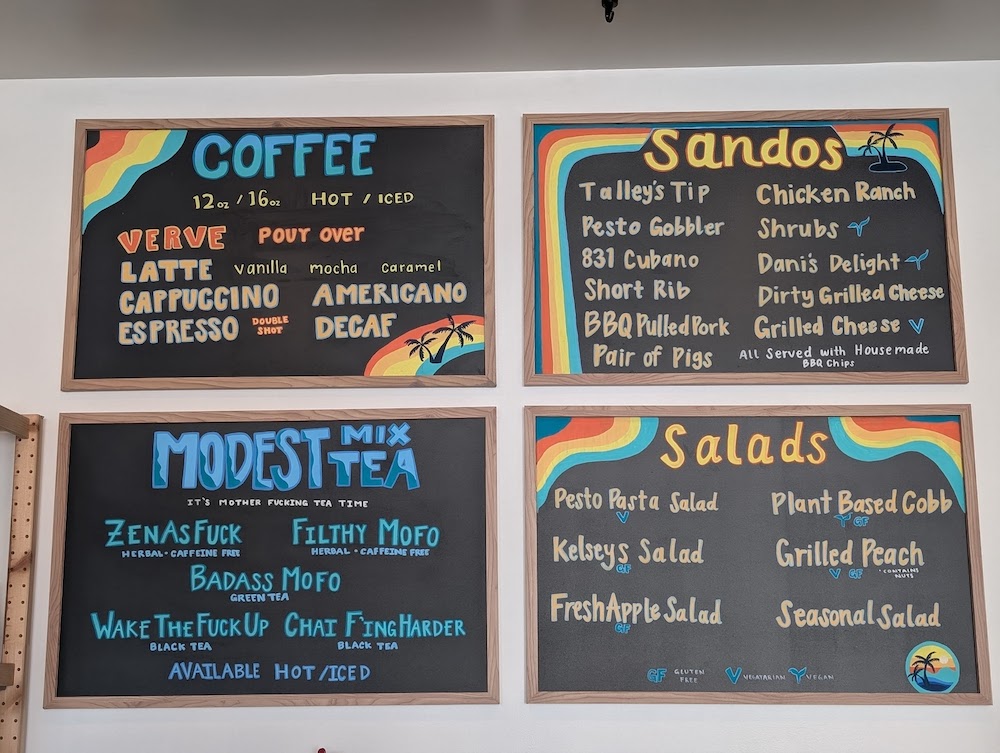 COFFEE
12oz / 16oz HOT / ICED
VERVE POUR OVER
LATTE vanilla mocha caramel
CAPPUCCINO AMERICANO
ESPRESSO DOUBLE SHOT DECAF
Sandos
Talley's Tip
Pesto Gobbler
831 Cubano
Short Rib
BBQ Pulled Pork
Pair of Pigs
Chicken Ranch
Shrubs
Dani's Delight
Dirty Grilled Cheese
Grilled Cheese V
All Served with Housemade
BBQ Chips
MODEST MIX TEA
IT'S MOTHER FUCKING TEA TIME
ZENASFUCK FILTHY MOFO
HERBAL - CAFFEINE FREE HERBAL - CAFFEINE FREE
BADASS MOFO
GREEN TEA
WAKE THE FUCK UP CHAI F'ING HARDER
BLACK TEA BLACK TEA
AVAILABLE HOT/ICED
Salads
Pesto Pasta Salad
V
Kelseys Salad
GF
Fresh Apple Salad
GF
Plant Based Cobb
GF
Grilled Peach
V GF *CONTAINS NUTS
Seasonal Salad
GF GLUTEN FREE V VEGATARIAN VEGAN